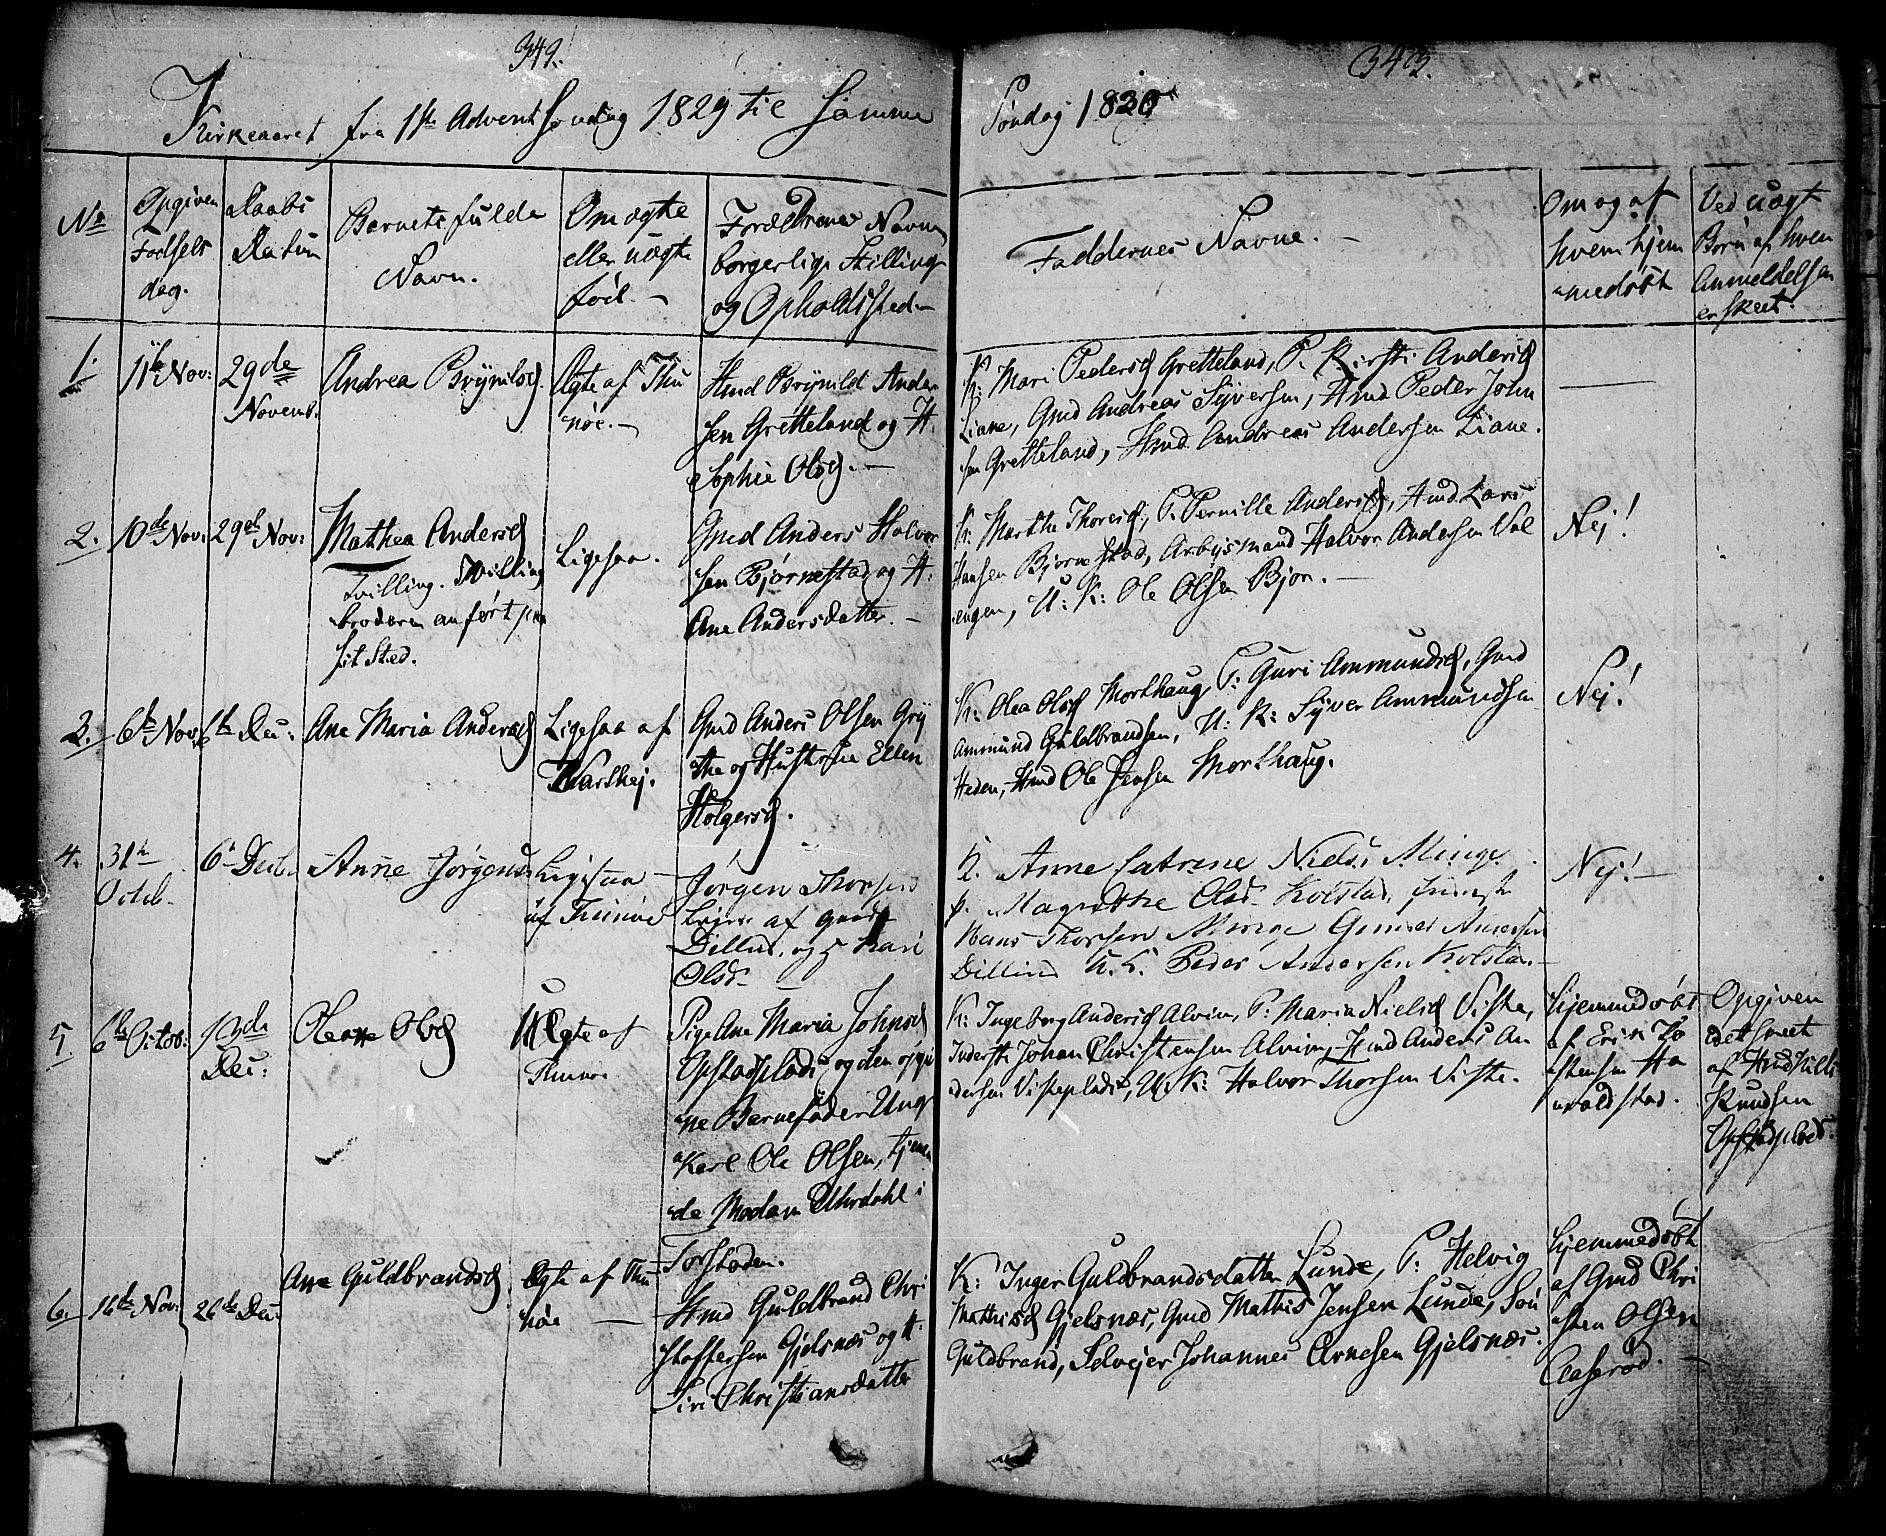 349.
343.
Kirkeaaret fra 1ste Advent Søndag 1829 til samme
Søndag 1830
No
Opgiven
Fødsels
dag.
Daabs
Datum
Barnets fulde
Navn.
Om ægte
eller uægte
fød. -
Forældrenes Navn
borgerlige Stilling
og Opholdssted -
Faddernes Navne. -
Om og af
hvem hjem
medøbt
Ved uægt
Børn af hvem
Anmeldelsen
er skeet.
1.
11te Nov:
29de
Novemb.
Andrea Brynilsd.
Ægte af Thu
nöe. -
Hmd Brÿnild Ander
sen Gretteland og H.
Sophie Olsd. -
K: Mari Pedersd Gretteland, P. Kirsti Andersd
Liane, Gmd Andreas Syversen, Hmd Peder John
sen Gretteland, Hmd Andreas Andersen Liane.
2.
10de Nov:
29de Nov:
Mathea Andersd
Tvilling. Tvilling
broderen anført paa
sit Sted.
Ligesaa.
Gmd Anders Halvor
sen Bjørnestad og H:
Ane Andersdatter. -
K: Marthe Thoresd, P. Pernille Andersd, Hmd Lars
Hansen Bjørnestad, Arbejsmand Halvor Andersen Vol
engen, U: K: Ole Olsen Bjørn. -
Nej!
3.
6te Nov.
6te Dec:
Ane Maria Andersd
Ligesaa af
Varthej.
Gmd Anders Olsen Gry
the og Hustrue Ellen
Holgersd.
K: Olea Olsd Morthaug, P: Guri Ammundsd, Gmd
Ammund Guldbrandsen, U: K: Syver Ammundsen
Heden, Hmd Ole Jensen Morthaug.
Nej!
4.
31te
Octob.
6te Decb.
Anne Jørgensd
Ligesaa
af Thunöe
Jørgen Thorsen
af
Dillud. og Kari
Olsd -
K. Anne Catrine Niels Minge
P. Magrethe Olsd Kolstad,
Hans Thorsen Minge Gunder Andersen
Dillind U. K. Peder Andersen Kolstad -
Nej! -
5.
6te Octob:
10de
Dec:
Oleane Olsd
U Ægte af
Thunöe
Pige Ane Maria Johnsd
Opstadplads og den opgi
vne Barnefader Ung
Karl Ole Olsen, tjenen
de Madam i
Forstaden.
K: Ingeborg Andersd Alvim, P: Maria Nielsd Viste,
Inderste Johan Christensen Alvim, Hmd Anders An
dersen Visteplads, U. K: Halvor Thorsen Viste.
Hjemmedøbt
af Erik To
stensen Ha
valdstad.
Opgiven
det Skeet
af Hmd Nils
Knudsen
Opstadplads.
6.
16de Nov:
26de Dec:
Ane Guldbrandsd
Ægte af Thu
nöe -
Hmd Guldbrand Chri
stoffersen Gjelsnæs og H:
Siri Christiansdatter
K: Inger Guldbrandsdatter Lunde, P: Helvig
Mathisd Gjelsnæs, Gmd Mathis Jensen Lunde, Søn
Guldbrand, Selvejer Johannes Arnesen Gjelsnæs.
Hjemmedøbt
af Gmd Chri
sten Olsen
Aaserød. -